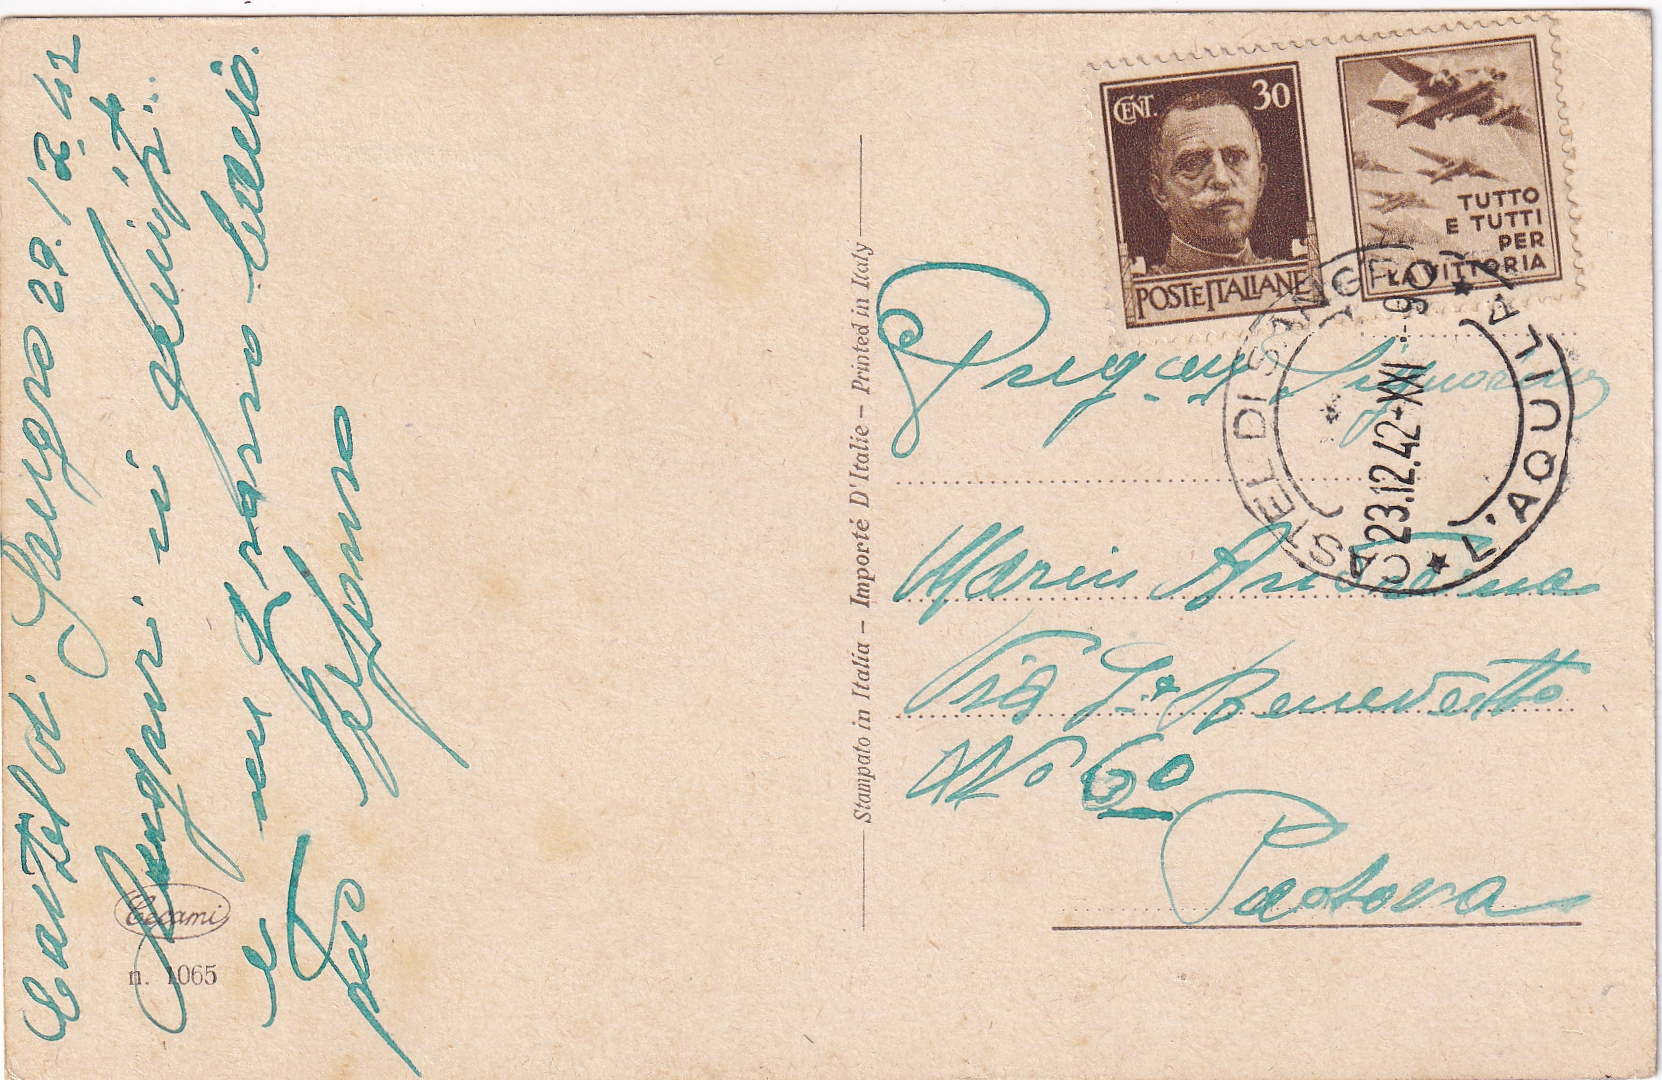 Castel di Sangro 29.12.42
Auguri ai
e un grosso bacio.
Tuo Stefano
Cecami
n. 1065
Stampato in Italia – Importé D'Italie – Printed in Italy
CENT. 30
POSTE ITALIANE
TUTTO
E TUTTI
PER
LA VITTORIA
CASTEL DI SANGRO
★ L'AQUILA ★
23.12.42-XXI
Signorina
Maria
Via S. Benedetto
N° 60
Padova